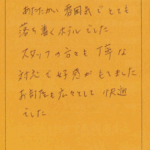 あたたかい雰囲気でとても
落ち着くホテルでした
スタッフの方も丁寧な
対応で好感がもてました
お部屋も広々として快適
でした